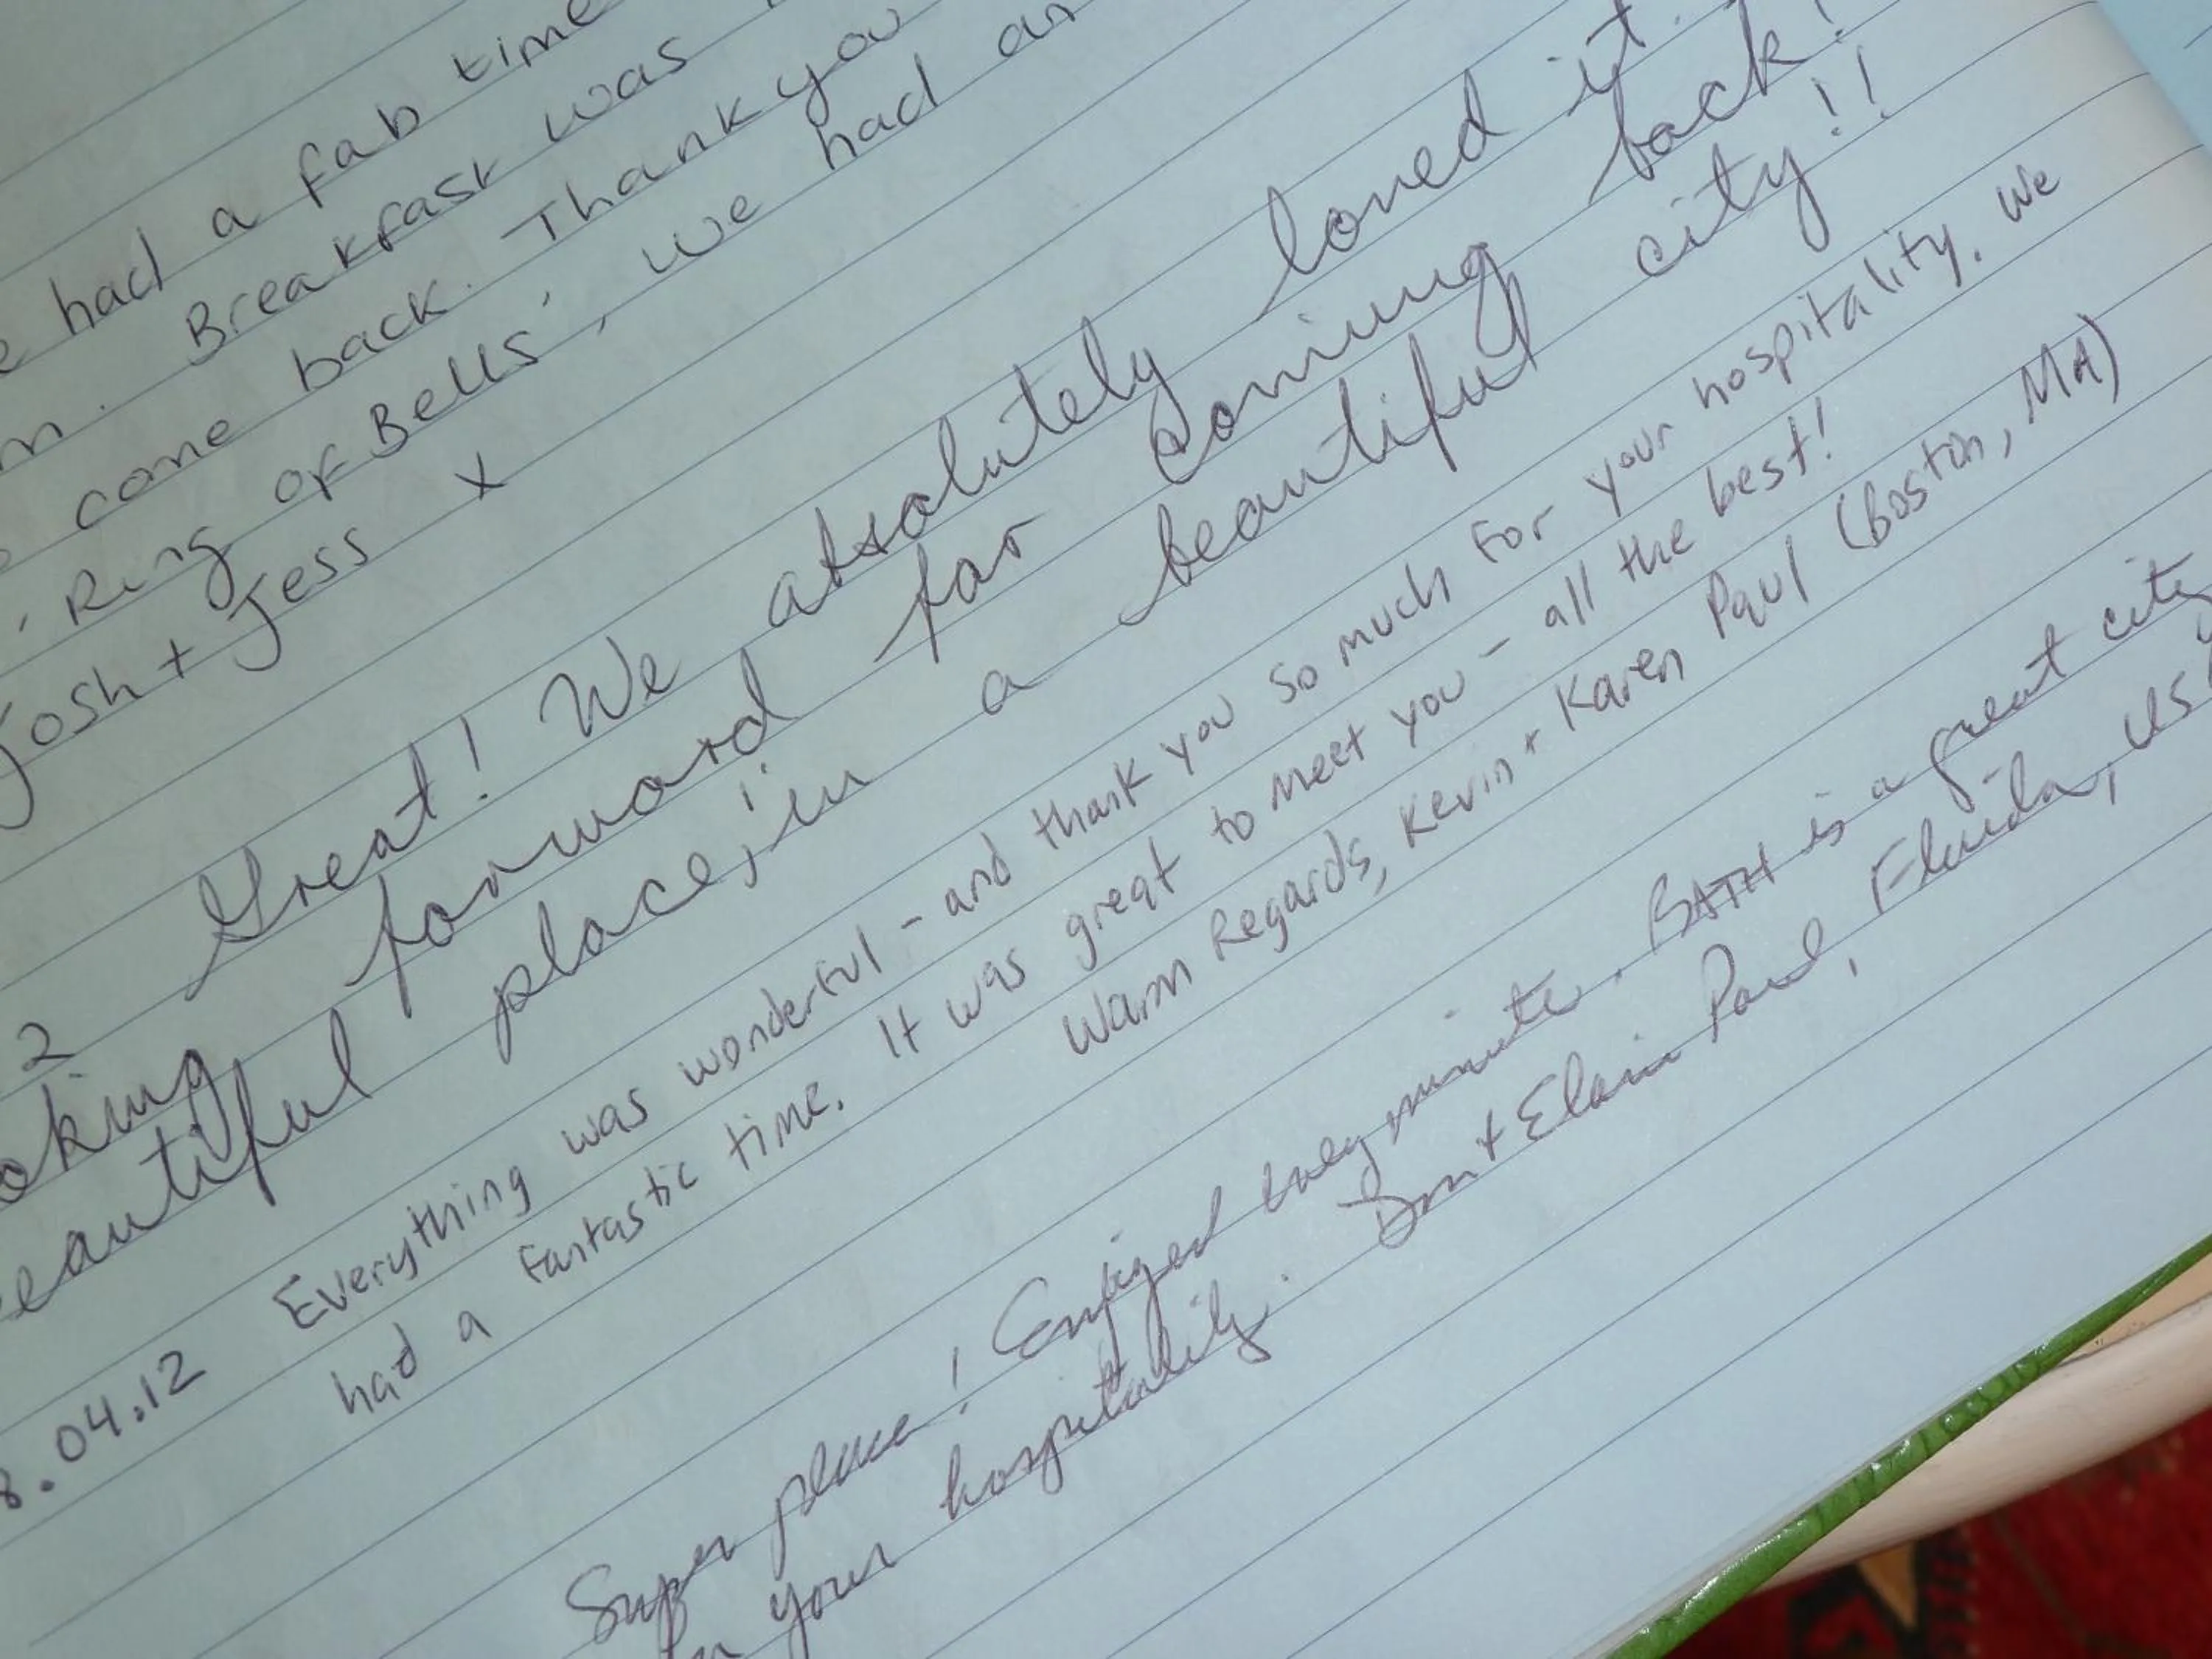 had a fab time
. Breakfast was
come back. Thank you
'Ring of Bells', we had an
Josh + Jess x
2 Great! We absolutely loved it.
oking forward for coming back!
eautiful place, in a beautiful city!!
8.04.12 Everything was wonderful - and thank you so much for your hospitality. We
had a fantastic time. It was great to meet you - all the best!
Warm Regards, Kevin + Karen Paul (Boston, MA)
Super place! Enjoyed every minute. BATH is a great city
your hospitality. Don + Elain Paul, Florida, US